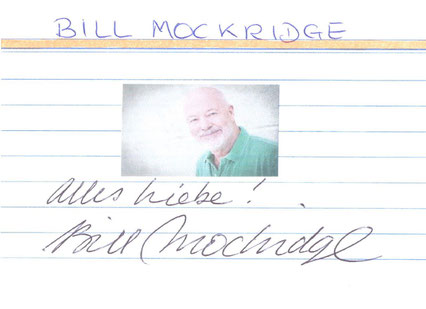 BILL MOCKRIDGE
Alles Liebe!
Bill Mockridge